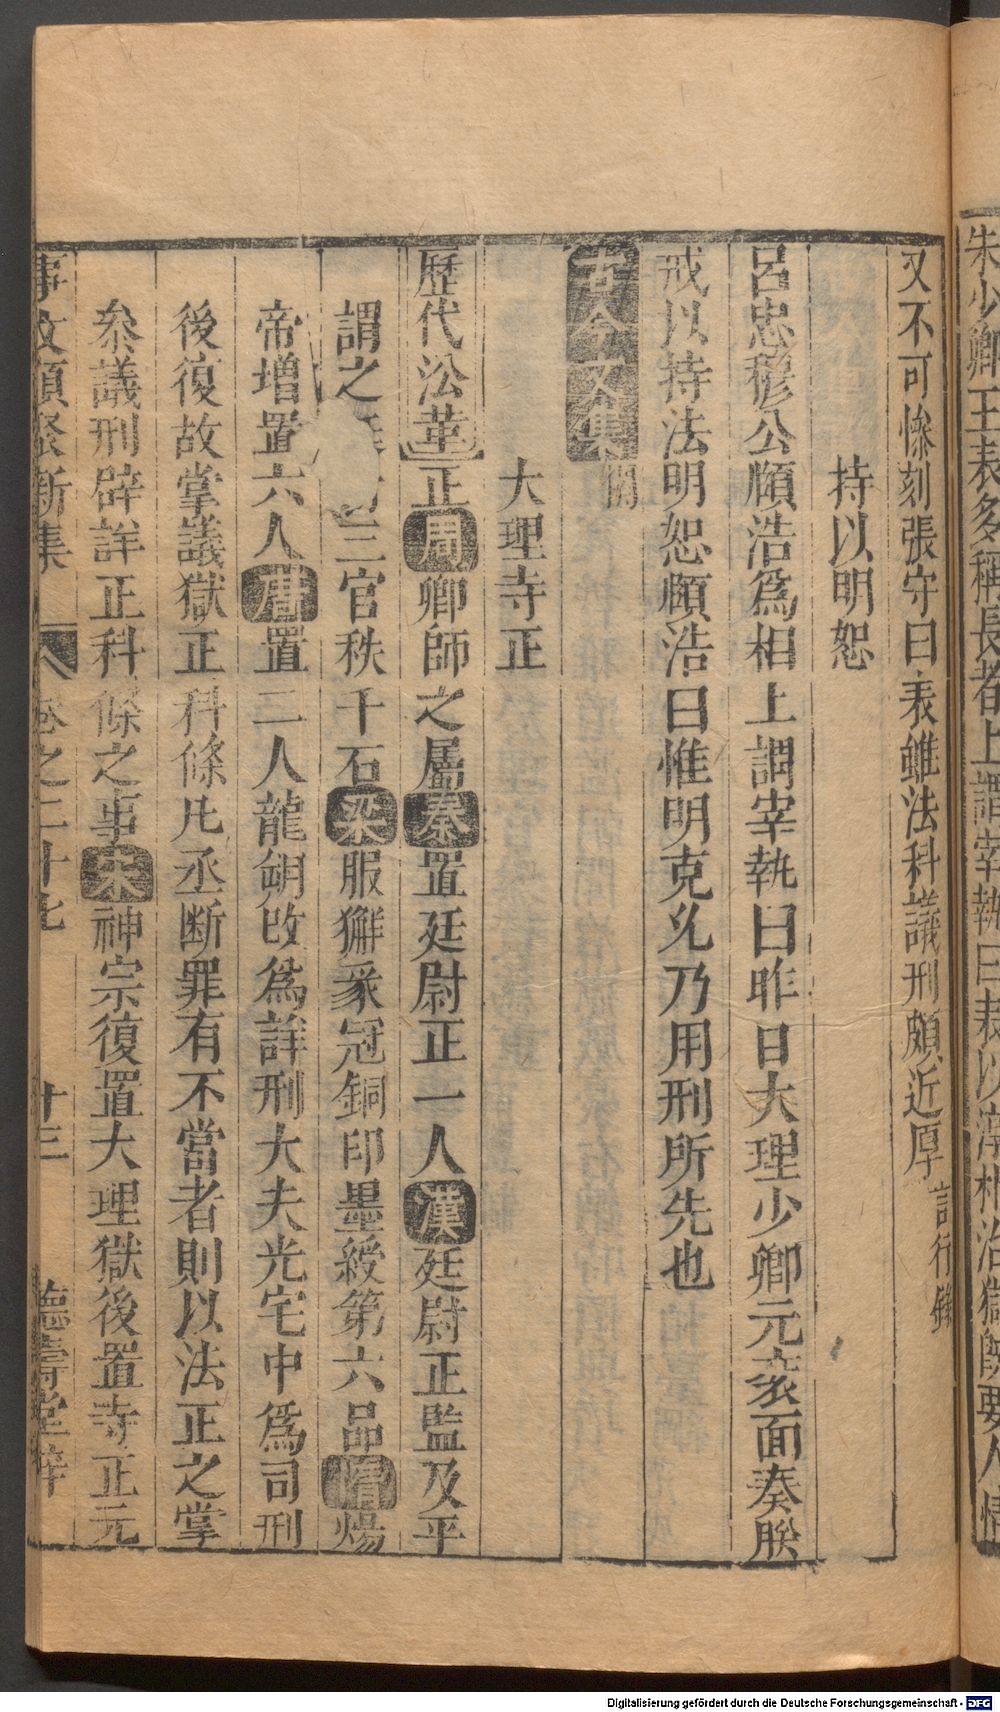 朱少卿王衮多稱長者上謂宰執曰裁以淳朴治獄飾要人情
又不可慘刻張守曰衮雖法科議刑頗近厚言行錄
持以明恕
呂忠穆公頤浩爲相上謂宰執曰昨日大理少卿元衮面奏朕
戒以持法明恕頤浩曰惟明克允乃用刑所先也
古今文集 闕
大理寺正
歷代沿革 正周卿師之屬秦置廷尉正一人漢廷尉正監及平
謂之三官秩千石梁服獬豸冠銅印墨綬第六品隋煬
帝增置六人唐置二人龍朔改爲詳刑大夫光宅中爲司刑
後復故掌議獄正科條凡丞断罪有不當者則以法正之掌
叅議刑辟詳正科條之事宋神宗復置大理獄後置寺正元
事文類聚新集 卷之二十七 十三 德壽堂梓
Digitalisierung gefördert durch die Deutsche Forschungsgemeinschaft - DFG